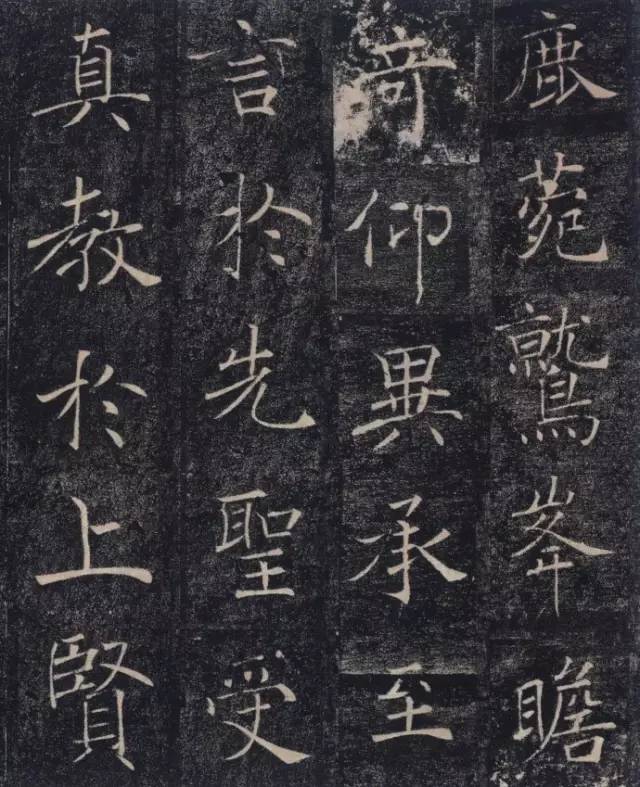 鹿菀鷲峯瞻
奇仰異承至
言於先聖受
真教於上賢